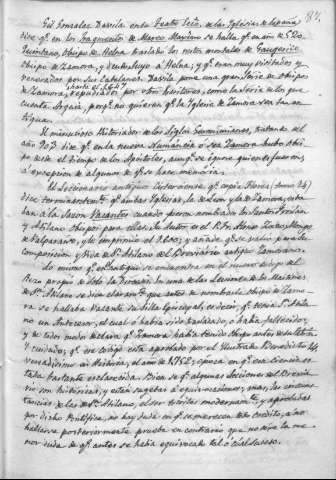 87.
Gil Gonzalez Davila en su Teatro Ecco. de las Iglesias de España
dice qe. en los fragmentos de Marco Maximo se halla qe. el año de
Quintano, Obispo de Helna traslado los restos mortales de
Obispo de Zamora, y de su suyo á Helna; y qe. eran muy visitados y
venerados por los Catalanes. Davila pone una gran Serie de Obispos
hasta el 1647
de Zamora, repudiados por otros Escritores, como la serie de los que
cuenta Argaiz, porqe. no quieren qe. la Iglesia de Zamora sea tan an-
tigua.
El minucioso Historiador de los Siglos Geronimianos, tratando del
año 903 dice qe. en la nueva Numancia ó sea Zamora hubo Obispo
desde el tiempo de los Apostoles, aunqe. se ignora quienes fueron,
á excepcion de algunos de qe. se hace memoria.
El Leccionario antiguo Asturicense qe. copia Florez (tomo 14)
dice terminantemte. qe. ambas Iglesias, la de Leon y la de Zamora, esta-
ban á la sazon Vacantes cuando fueron nombrados los Santos Froilan
y Atilano Obispos para ellas. Su autor es el P. Fr. Atanasio Lobera, Monge
de Valparaiso, y lo imprimio el 1600; y añade qe. se valio para la
composicion y Vida de Sn. Atilano del Breviario antiguo Zamorano.
Lo mismo qe. el antiguo se encuentra en el nuevo codigo del
Rezo propio de toda la Diocesis. En una de las Lecciones de los Maitines
de Sn. Atilano se dice claramte. que antes de nombrarle Obispo de Zamo-
ra se hallaba Vacante su Silla Episcopal, es decir, qe. tenia Sn. Atila-
no un Antecesor, el cual ó habia sido trasladado, ó habia fallecido,
y de todos modos claro qe. Zamora habia tenido Obispo antes de su Atilano.
Y cuidado, qe. ese codigo está aprobado por el Ilustrado Benedicto 14,
versadisimo en Historia, el año de 1752; época en qe. esa ciencia es-
taba bastante esclarecida. Bien se qe. algunas Lecciones del Brevia-
rio son historicas, y estan sugetas á equivocaciones; mas, las circuns-
tancias de las de Sn. Atilano, el ser escritas modernamte. y aprobadas
por dicho Pontifice, no hay duda en qe. se merecen mas credito, á no
hallarse posteriormente prueba en contrario que no deje la me-
nor duda de qe. antes se habia equivocado tal ó cual suceso.